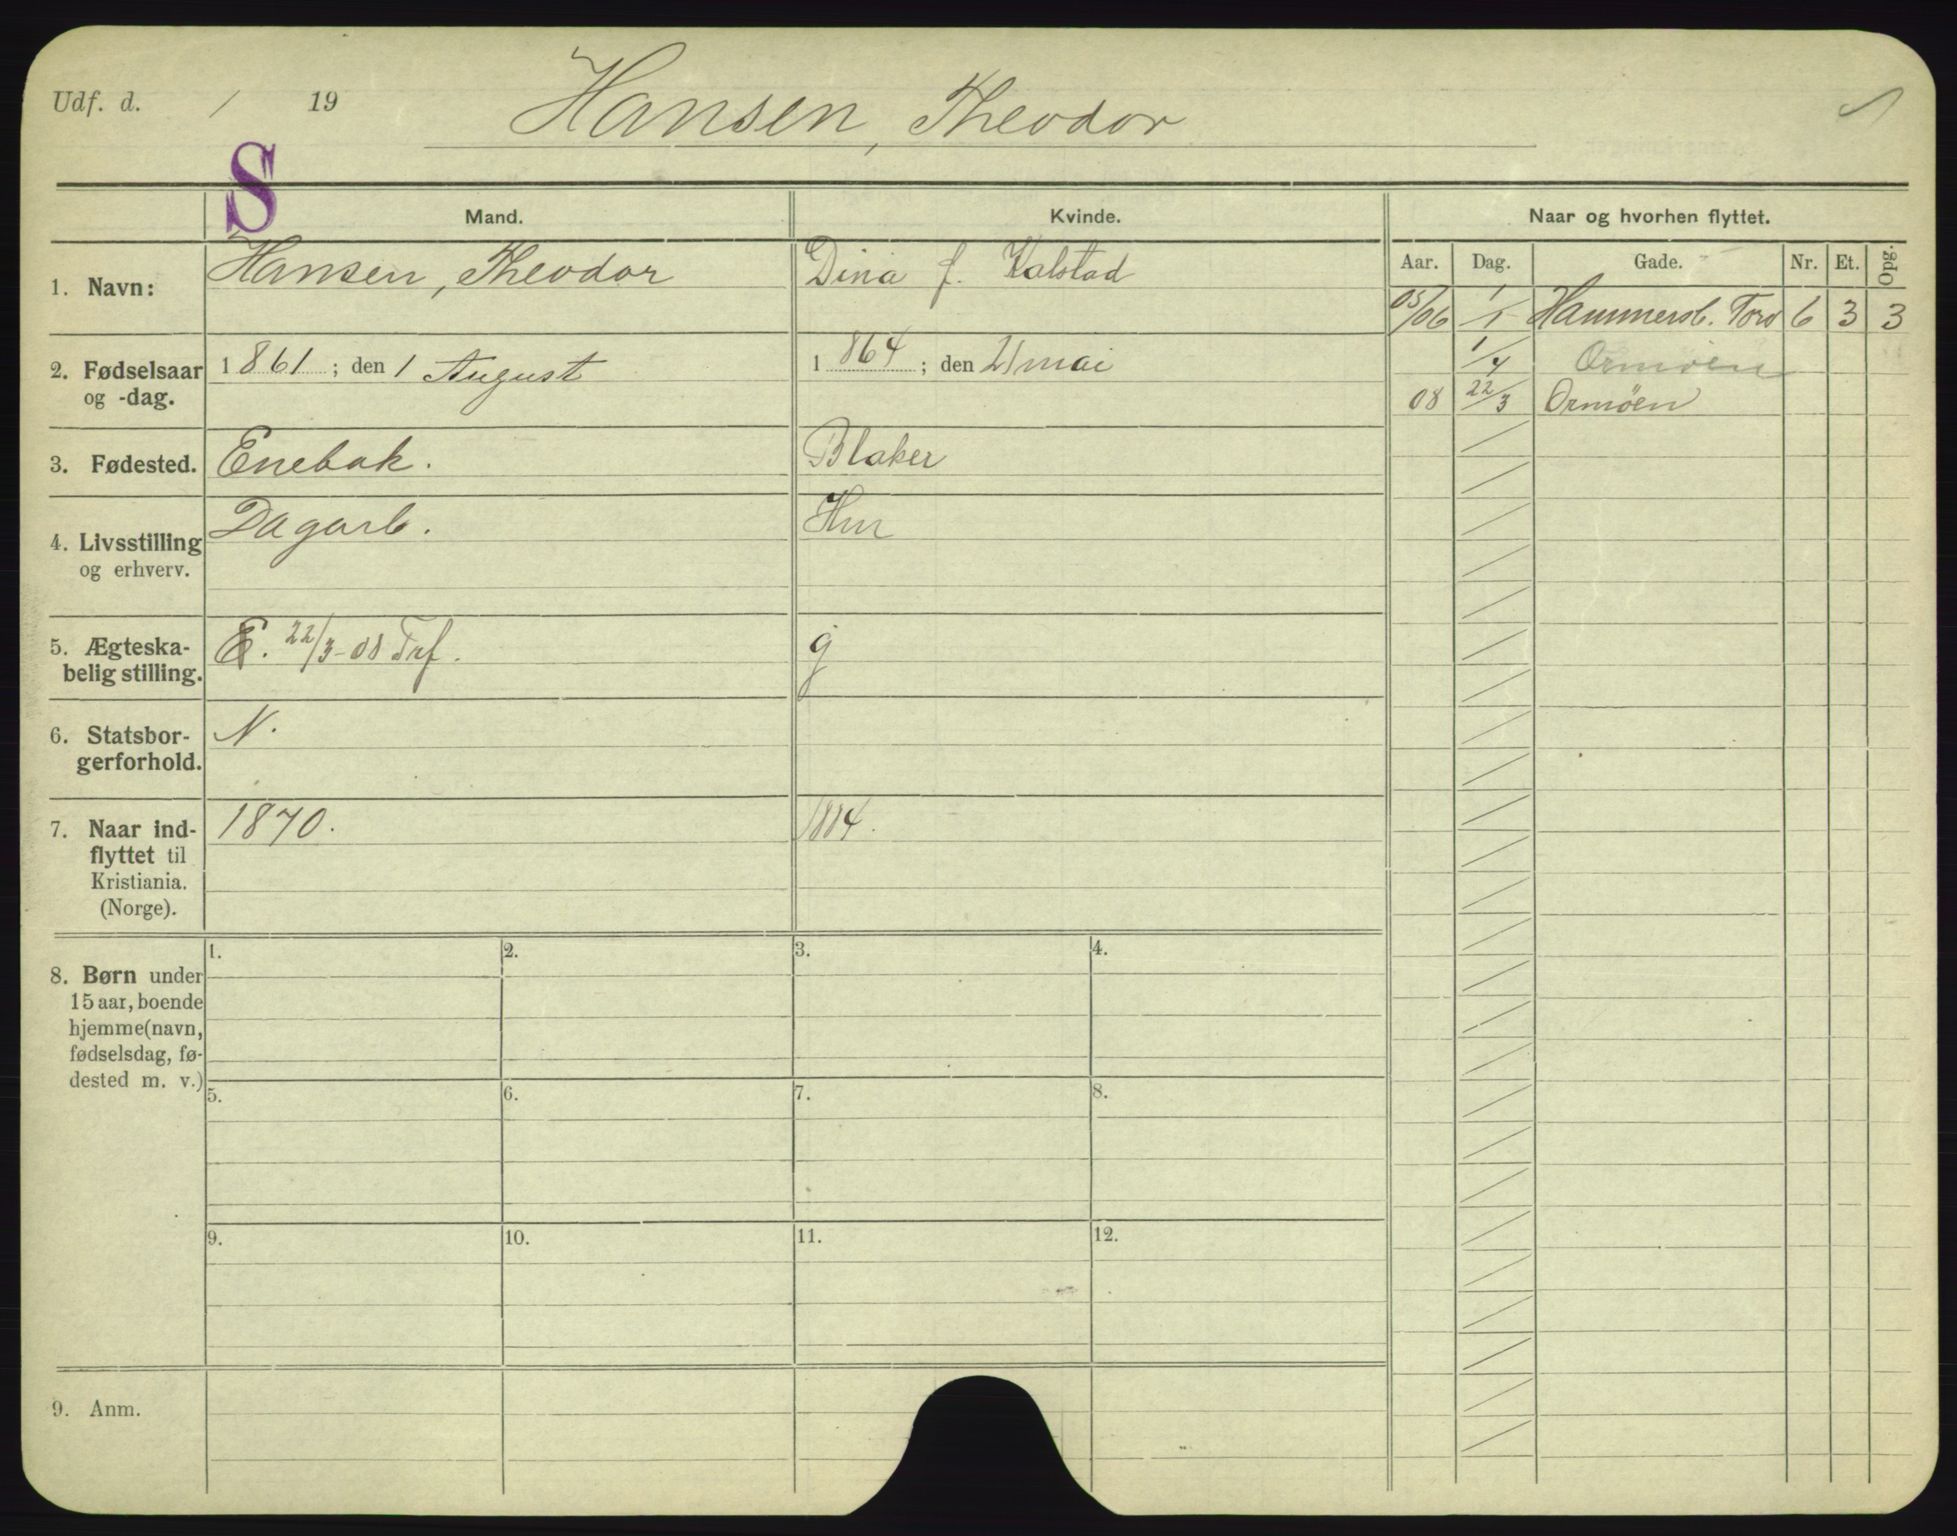 Udf. d. / 19 Hansen, Theodor
S
Mand. Kvinde. Naar og hvorhen flyttet.
Aar. Dag. Gade. Nr. Et. Opg.
1. Navn: Hansen, Theodor Dina f. Kalstad
05/06 1/1 Hammersb. Torv 6 3 3
1/4 Ormøen
08 22/3 Ormöen
2. Fødselsaar 1861 ; den 1 August 1864 ; den 21 mai
og -dag.
3. Fødested. Enebak. Blaker
4. Livsstilling Dagarb. Hm
og erhverv.
5. Ægteska- E. 22/3-08 Trf. g
belig stilling.
6. Statsbor- N.
gerforhold.
7. Naar ind- 1870. 1884.
flyttet til
Kristiania.
(Norge).
8. Børn under
15 aar, boende
hjemme (navn,
fødselsdag, fø-
dested m. v.)
1. 2. 3. 4.
5. 6. 7. 8.
9. 10. 11. 12.
9. Anm.